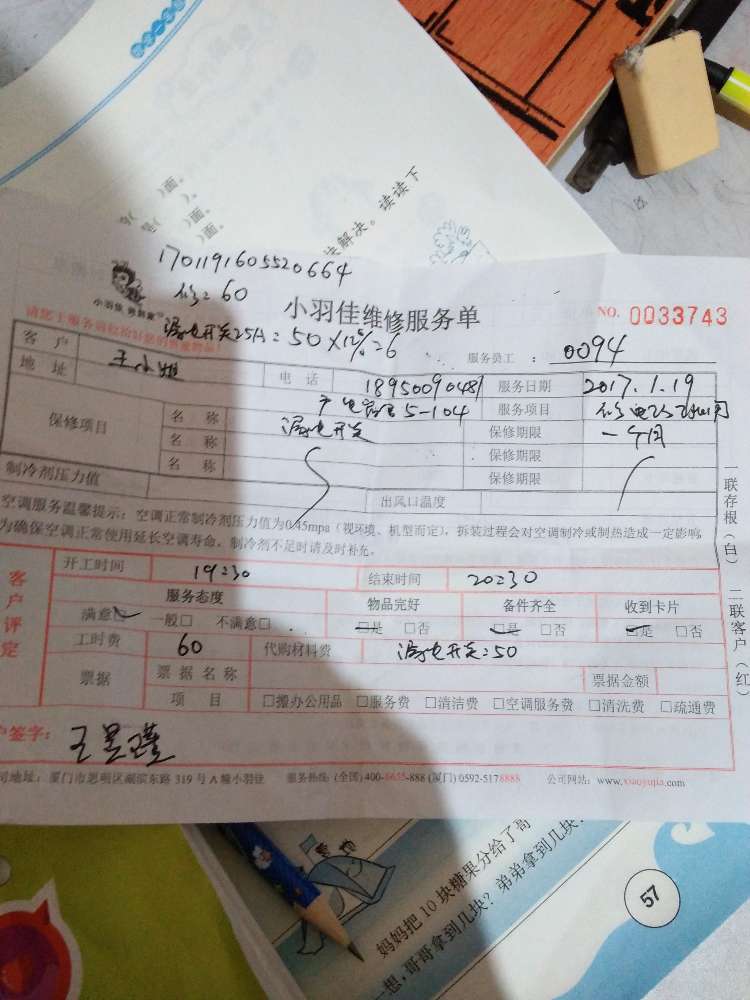 )面。
是( )。
)面。
)面。
块解决。读读下
1701191605520664
修=60
小羽佳
小羽佳维修服务单
NO. 0033743
漏电开关25A=50×12%=6
服务员工: 0094
客户 王小姐
电话 18950090487
服务日期 2017.1.19
地址
服务项目
保修项目
名称
5-104
保修期限 一个月
名称 漏电开关
保修期限
名称
保修期限
制冷剂压力值
出风口温度
空调服务温馨提示:空调正常制冷剂压力值为0.45mpa(视环境、机型而定),拆装过程会对空调制冷或制热造成一定影响
为确保空调正常使用延长空调寿命,制冷剂不足时请及时补充。
一联存根(白) 二联客户(红)
客户评定
开工时间 19:30
结束时间 20:30
服务态度
物品完好
备件齐全
收到卡片
满意☑ 一般□ 不满意□
☑是 □否
☑是 □否
☑是 □否
工时费 60
代购材料费 漏电开关=50
票据
票据名称
票据金额
项目
□搬办公用品 □服务费 □清洁费 □空调服务费 □清洗费 □疏通费
户签字:
司地址:厦门市思明区湖滨东路319号A幢小羽佳 服务热线:(全国)400-6655-888 (厦门)0592-5178888 公司网站:www.xiaoyujia.com
妈妈把10块糖果分给了哥
想,哥哥拿到几块?弟弟拿到几块?
57